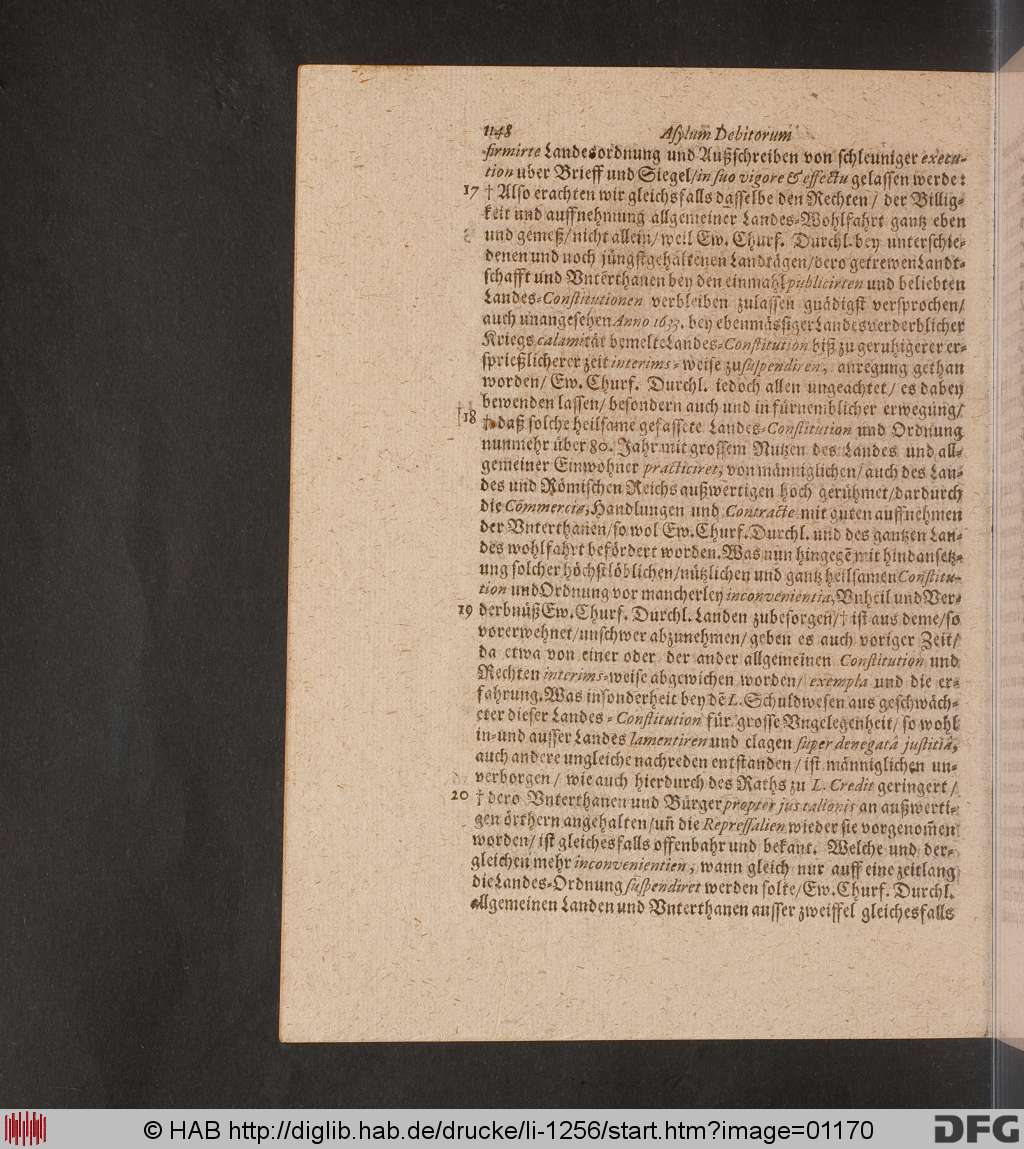 1148 Asylum Debitorum
firmirte Landesordnung und Außschreiben von schleuniger execu-
tion uber Brieff und Siegel/ in suo vigore & effectu gelassen werde:
17 † Also erachten wir gleichsfalls dasselbe den Rechten/ der Billig-
keit und auffnehmung allgemeiner Landes-Wohlfahrt gantz eben
und gemeß/ nicht allein/ weil Ew. Churf. Durchl. bey unterschie-
denen und noch jüngstgehaltenen Landtägen/ dero getrewen Landt-
schafft und Vnterthanen bey den einmahl publicirten und beliebten
Landes-Constitutionen verbleiben zulassen gnädigst versprochen/
auch unangesehen Anno 1633. bey ebenmässiger Landesverderblicher
Kriegs calamität bemelte Landes-Constitution biß zu geruhigerer er-
sprießlicherer zeit interims-weise zu suspendiren, anregung gethan
worden/ Ew. Churf. Durchl. iedoch allen ungeachtet/ es dabey
bewenden lassen/ besondern auch und in fürnemblicher erwegung/
18 † daß solche heilsame gefassete Landes-Constitution und Ordnung
nunmehr über 80. Jahr mit grossem Nutzen des Landes und all-
gemeiner Einwohner practiciret, von männiglichen/ auch des Lan-
des und Römischen Reichs außwertigen hoch gerühmet/ dardurch
die Commercia, Handlungen und Contracte mit guten auffnehmen
der Vnterthanen/ so wol Ew. Churf. Durchl. und des gantzen Lan-
des wohlfahrt befördert worden. Was nun hingegē mit hindansetz-
ung solcher höchstlöblichen/ nützlichen und gantz heilsamen Constitu-
tion und Ordnung vor mancherley inconvenientia, Vnheil und Ver-
19 derbnüß Ew. Churf. Durchl. Landen zubesorgen/ † ist aus deme/ so
vorerwehnet/ unschwer abzunehmen/ geben es auch voriger Zeit/
da etwa von einer oder der ander allgemeinen Constitution und
Rechten interims-weise abgewichen worden/ exempla und die er-
fahrung. Was insonderheit bey dē L. Schuldwesen aus geschwäch-
eter dieser Landes-Constitution für grosse Vngelegenheit/ so wohl
in- und ausser Landes lamentiren und clagen super denegatâ justitiâ,
auch andere ungleiche nachreden entstanden/ ist männiglichen un-
verborgen/ wie auch hierdurch des Raths zu L. Credit geringert/
20 † dero Vnterthanen und Bürger propter jus talionis an außwerti-
gen örthern angehalten/ uñ die Repressalien wieder sie vorgenom̄en
worden/ ist gleichesfalls offenbahr und bekant. Welche und der-
gleichen mehr inconvenientien, wann gleich nur auff eine zeitlang
die Landes-Ordnung suspendiret werden solte/ Ew. Churf. Durchl.
allgemeinen Landen und Vnterthanen ausser zweiffel gleichesfalls
© HAB http://diglib.hab.de/drucke/li-1256/start.htm?image=01170
DFG